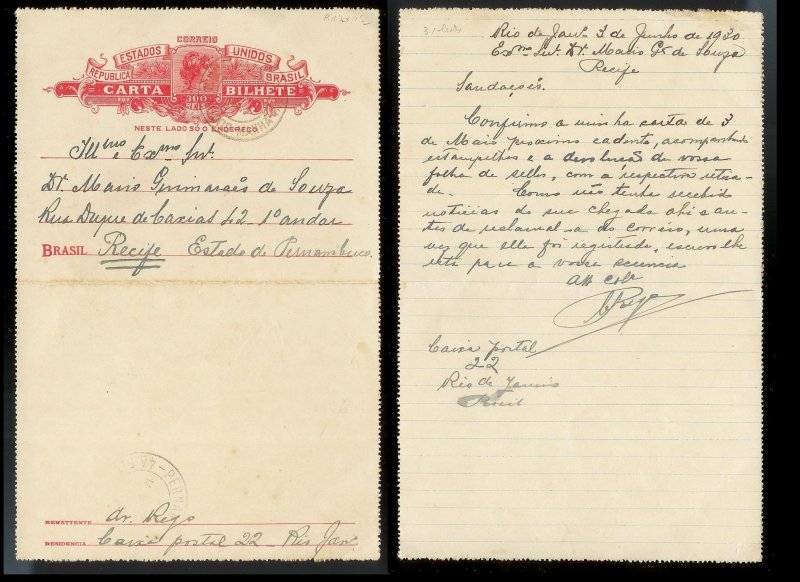 CORREIO
ESTADOS UNIDOS
REPUBLICA BRASIL
CARTA 300 REIS BILHETE
NESTE LADO SÓ O ENDEREÇO
Illmo e Exmo Snr.
Dr. Mario Guimarães de Souza
Rua Duque de Caxias 42 - 1º andar
BRASIL Recife Estado de Pernambuco.
REMETTENTE Ar. Rego
RESIDENCIA Caixa postal 22 - Rio Janº
Rio de Janº 3 de Junho de 1930
Exmo Snr. Dr. Mario Gs de Souza
Recife
Saudações.
Confirmo a minha carta de 3
de Maio proximo cadente, acompanhada
estampilhas e a devolução de vossa
folha de sellos, com a respectiva retira-
da. Como não tenha recebido
noticias do sua chegada ahi e an-
tes de reclamal-a do correio, uma
vez que ella foi registrada, escrevo lhe
esta para a vossa sciencia
Att Colº
ARego
Caixa postal
22
Rio de Janeiro
Brasil